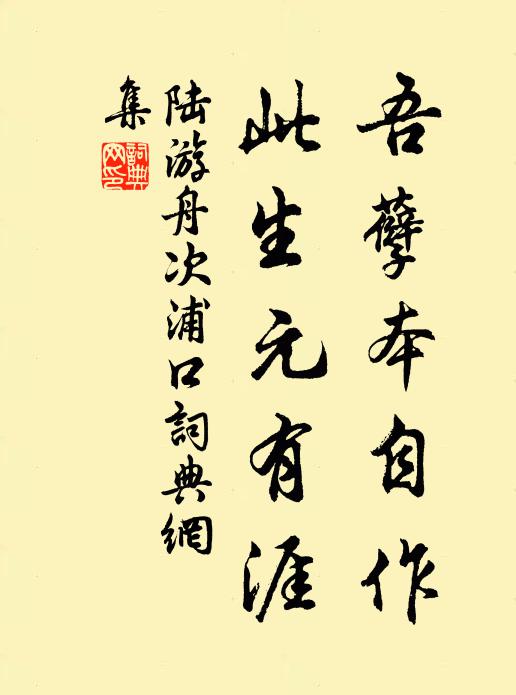 吾孽本自作
此生元有涯
陆游舟次浦口詞典網
集
詞典網印